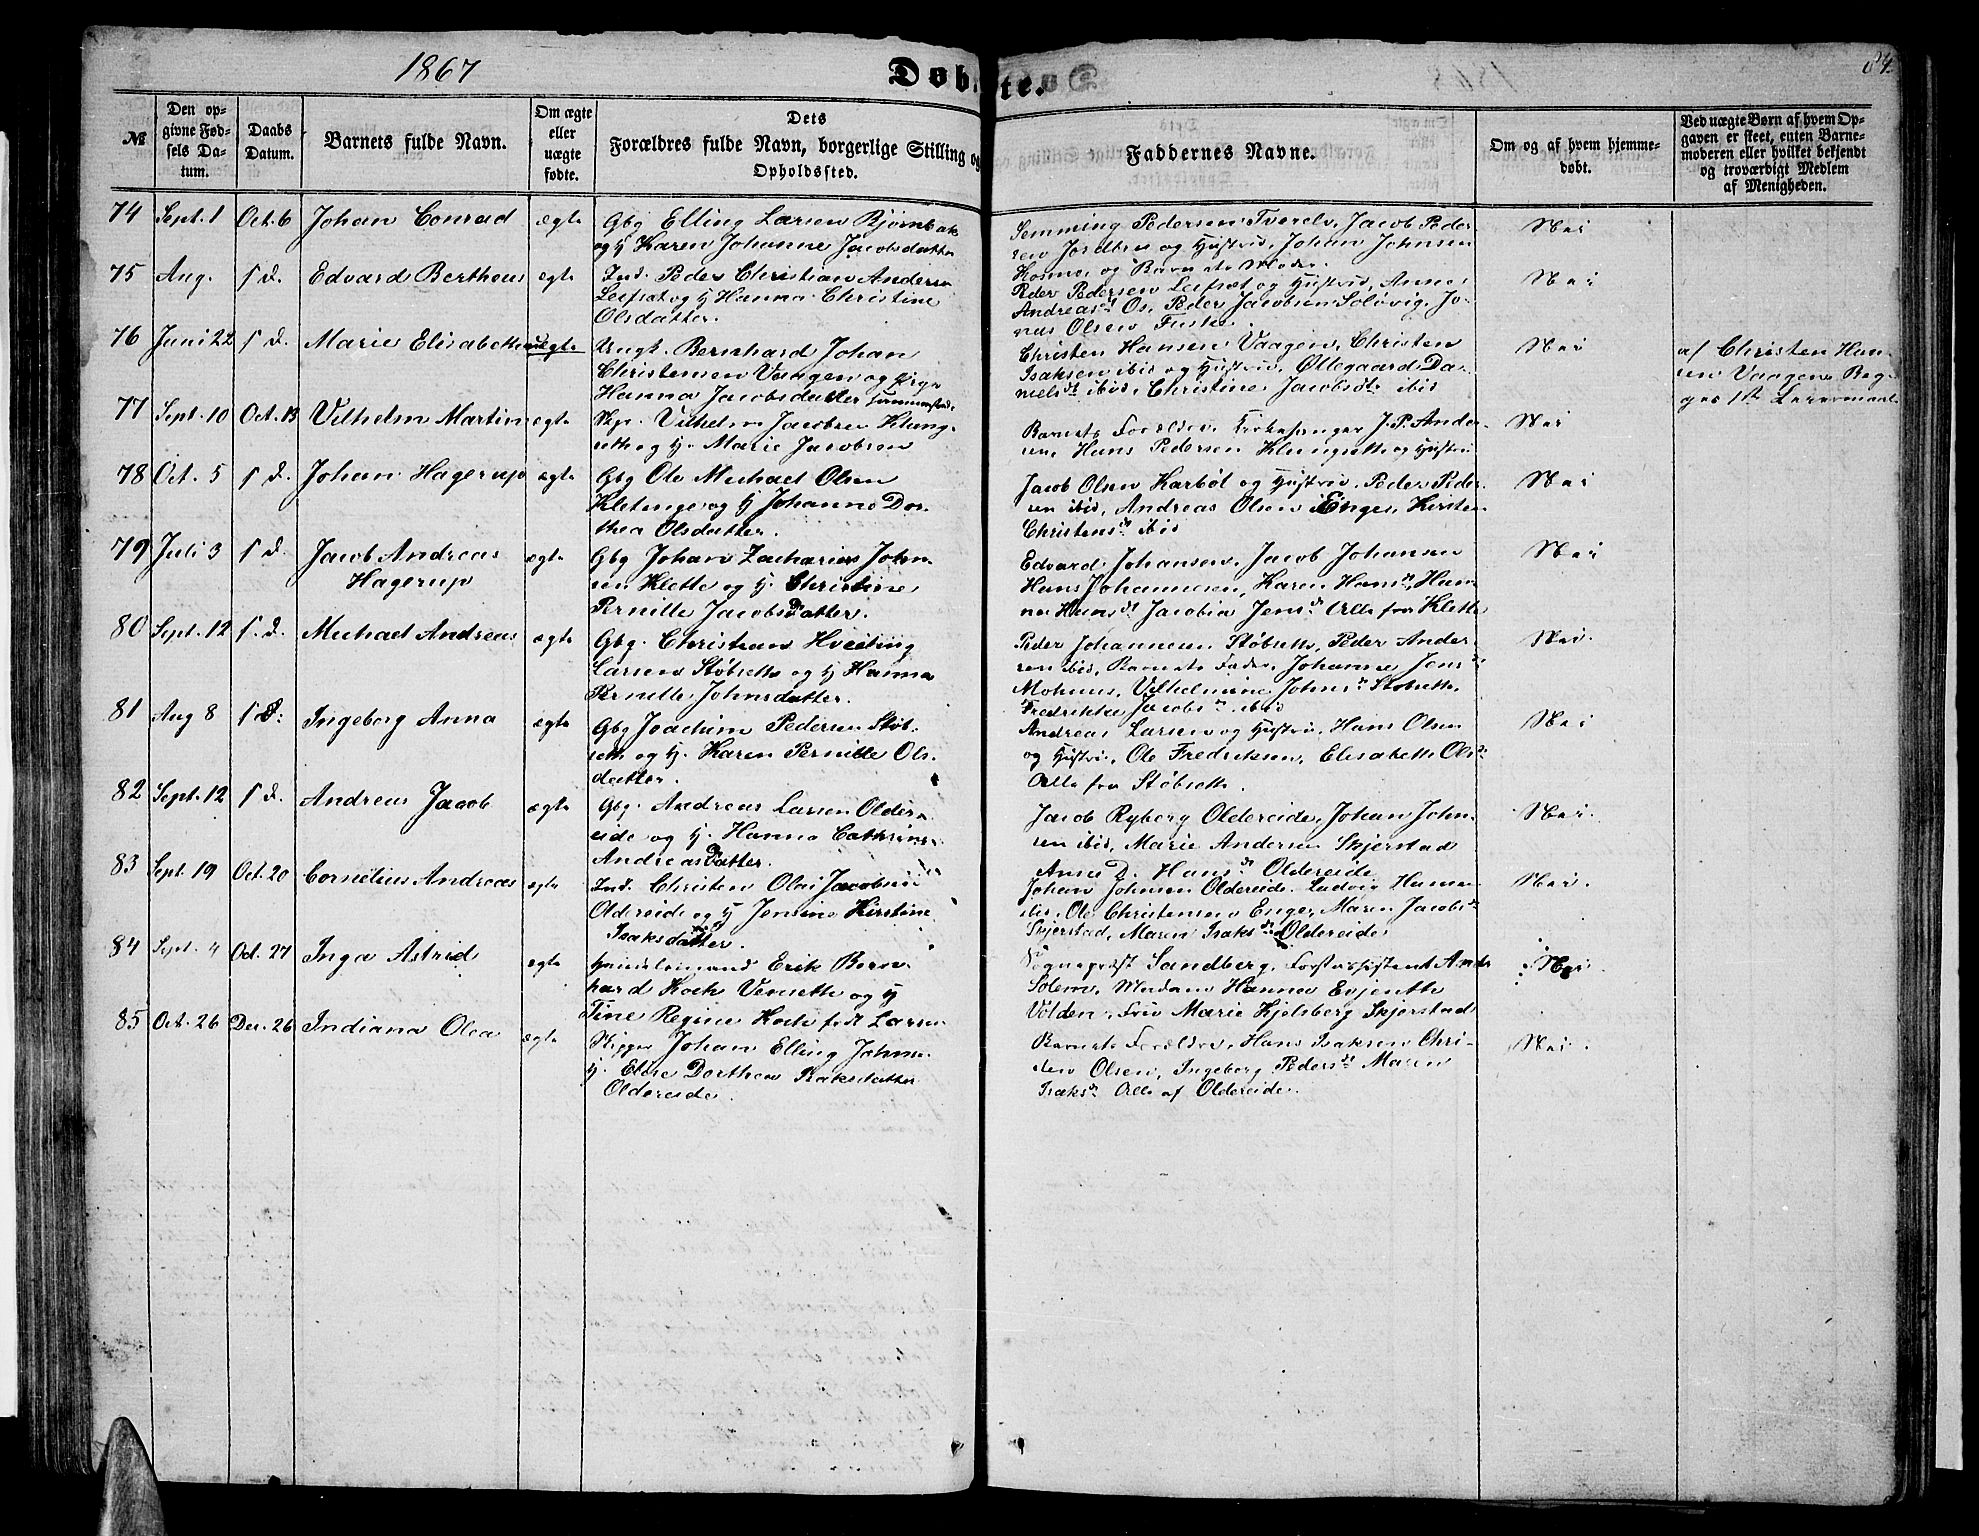 1867
Døbte.
84.
№
Den opgivne Fødsels Datum.
Daabs Datum.
Barnets fulde Navn.
Om ægte eller uægte fødte.
Dets Forældres fulde Navn, borgerlige Stilling og Opholdssted.
Faddernes Navne.
Om og af hvem hjemmedøbt.
Ved uægte Børn af hvem Opgaven er skeet, enten Barnemoderen eller hvilket bekjendt og troværdigt Medlem af Menigheden.
74 Sept. 1 Oct. 6 Johan Conrad ægte
Gbg Elling Larsen Bjørnbak
og H Karen Johanne Jacobsdatter
Semming Pedersen Tverelv, Jacob Peder
sen Jordbru og Hustru, Johan Johnsen
Kosmo, og Barnets Moder.
Nei
75 Aug. s d. Edvard Bertheus ægte
Ind. Peder Christian Andersen
Leifsæt og H Hanna Christine
Olsdatter.
Peder Pedersen Leifsæt og Hustru, Anne
Andreasdt Os, Peder Jacobsen Soløvig, Jo-
nas Olsen Fuske.
Nei
76 Juni 22 s d. Marie Elisabeth uægte
Ungk. Bernhard Johan
Christensen Vaagen og Pige
Hanna Jacobsdatter
Christen Hansen Vaagen, Christen
Isaksen ibid og Hustru, Ollegaard Da-
nielsdt ibid, Christine Jacobsdt ibid
Nei
af Christen Han-
sen Vaagen. Beg-
ges 1ste Leiermaal.
77 Sept. 10 Oct. 13 Vilhelm Martin ægte
Skp. Vilhelm Jacobsen Klung-
seth og H. Marie Jacobsen
Barnets Forældre, Kirkesanger J. P. Ander-
sen, Hans Pedersen Klungseth og Hustru
Nei
78 Oct. 5 s d. Johan Hagerup ægte
Gbg Ole Michael Olsen
Kletinge og H Johanne Dor-
thea Olsdatter.
Jacob Olsen Karbøl og Hustru, Peder Peder-
sen ibid, Andreas Olsen Enge, Kirsten
Christensdt ibid
Nei
79 Juli 3 s d. Jacob Andreas
Hagerup ægte
Gbg Johan Zacharias John-
sen Klette og H Christine
Pernille Jacobsdatter.
Edvard Johansen, Jacob Johansen
Hans Johannesen, Karen Hansdt, Han-
na Hansdt Jacobia Jensdt Alle fra Klette
Nei
80 Sept. 12 s d. Michael Andreas ægte
Gbg. Christian Hveding
Larsen Støbseth og H Hanna
Pernille Johnsdatter.
Peder Johannesen Støbseth, Peder Ander-
sen ibid, Barnets Fader, Johanna Jensdt
Mohuus, Vilhelmine Johnsdt Støbseth,
Fredrikke Jacobsdt ibid
Nei.
81 Aug 8 s d: Ingeborg Anna ægte
Gbg Joachim Pedersen Støb-
seth og H. Karen Pernille Ols-
datter.
Andreas Larsen og Hustru, Hans Olsen
og Hustru, Ole Fredriksen, Elisabeth Olsdt
Alle fra Støbseth.
Nei
82 Sept. 12 s d. Andreas Jacob ægte
Gbg. Andreas Larsen Older-
eide og H. Hanna Cathrine
Andreasdatter.
Jacob Ryberg Oldereide, Johan John-
sen ibid, Marie Andersen Skjerstad
Anne D. Hansdt Oldereide
Nei.
83 Sept. 19 Oct. 20 Cornelius Andreas ægte
Ind. Christen Olai Jacobsen
Oldereide og H Jensine Kirstine
Isaksdatter.
Johan Johnsen Oldereide, Ludvig Hansen
ibid, Ole Christensen Enge, Maren Jacobsdt
Skjerstad, Maren Isaksdt Oldereide
Nei.
84 Sept. 4 Oct. 27 Inga Astrid ægte
Handelsmand Erik Bern-
hard Koch Venseth og H
Tine Regine Koch født Larsen
Sognepræst Sandberg, Forstassistent Anders
Solem, Madam Hanna Evjenth
Volden, Fru Marie Kjelsberg Skjerstad
Nei.
85 Oct. 26 Dec. 26 Indiana Olea ægte
Skipper Johan Elling Johnsen
H. Elise Dorthea Isaksdatter
Oldereide.
Barnets Forældre, Hans Isaksen Chri-
sten Olsen, Ingeborg Pedersdt Maren
Isaksdt Alle af Oldereide.
Nei.